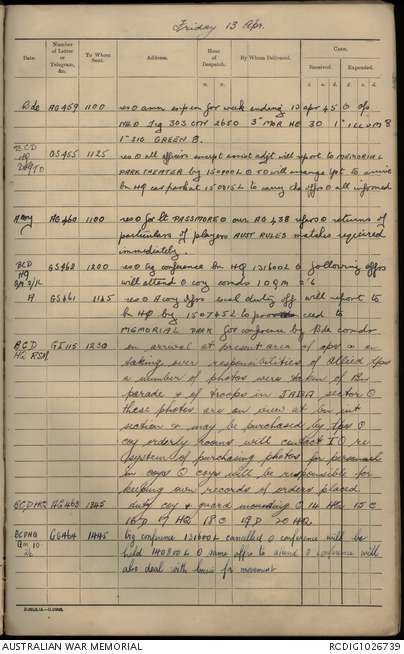 Friday 13 Apr.
Date. Number of Letter or Telegram, &c. To Whom Sent. Address. Hour of Despatch. By Whom Delivered. Cash.
Received. Expended.
Bde AG459 1100 res O amn expen for week ending 13 apr 45 O
303 CTN 2650 3" MOR HE 30
1" SIG GREEN 8.
BCD GS455 1125 res O all officers except assist adjt will report to MEMORIAL
PARK THEATER by 150800L O TO will arrange tpt to
bn HQ car park at to carry offrs O all informed
AG460 1100 res O for Lt PASSMORE O our AG 438 refers O returns of
particulars of players AUST RULES matches required
immediately.
BCD GS462 1200 res O big conference bn HQ 131600L O following offrs
HQ will attend O coy comds QM
A GS461 1145 res O A coy offrs duty off will report to
bn HQ by 150745L to proceed to
MEMORIAL PARK for conference by Bde comd
BCD GS115 1230 on arrival at present area of ops & on
HQ RSM taking over responsibilities of Allied tps
a number of photos were taken of Bn
parade & of troops in JABA sector O
these photos are on view at bn int
section & may be purchased by tps O
coy orderly rooms will contact IO re
system of purchasing photos for personnel
in coys O coys will be responsible for
keeping own records of orders placed
BCD HQ AG463 1345 duty coy & guard mounting O 14 HQ 15 C
16 D 17 HQ 18 C 19 D 20 HQ
BCDHQ GS464 1445 big conference 131600L cancelled O conference will be
QM held 140800L O same offrs to attend O conference will
also deal with move for movement
AUSTRALIAN WAR MEMORIAL
RCDIG1026739